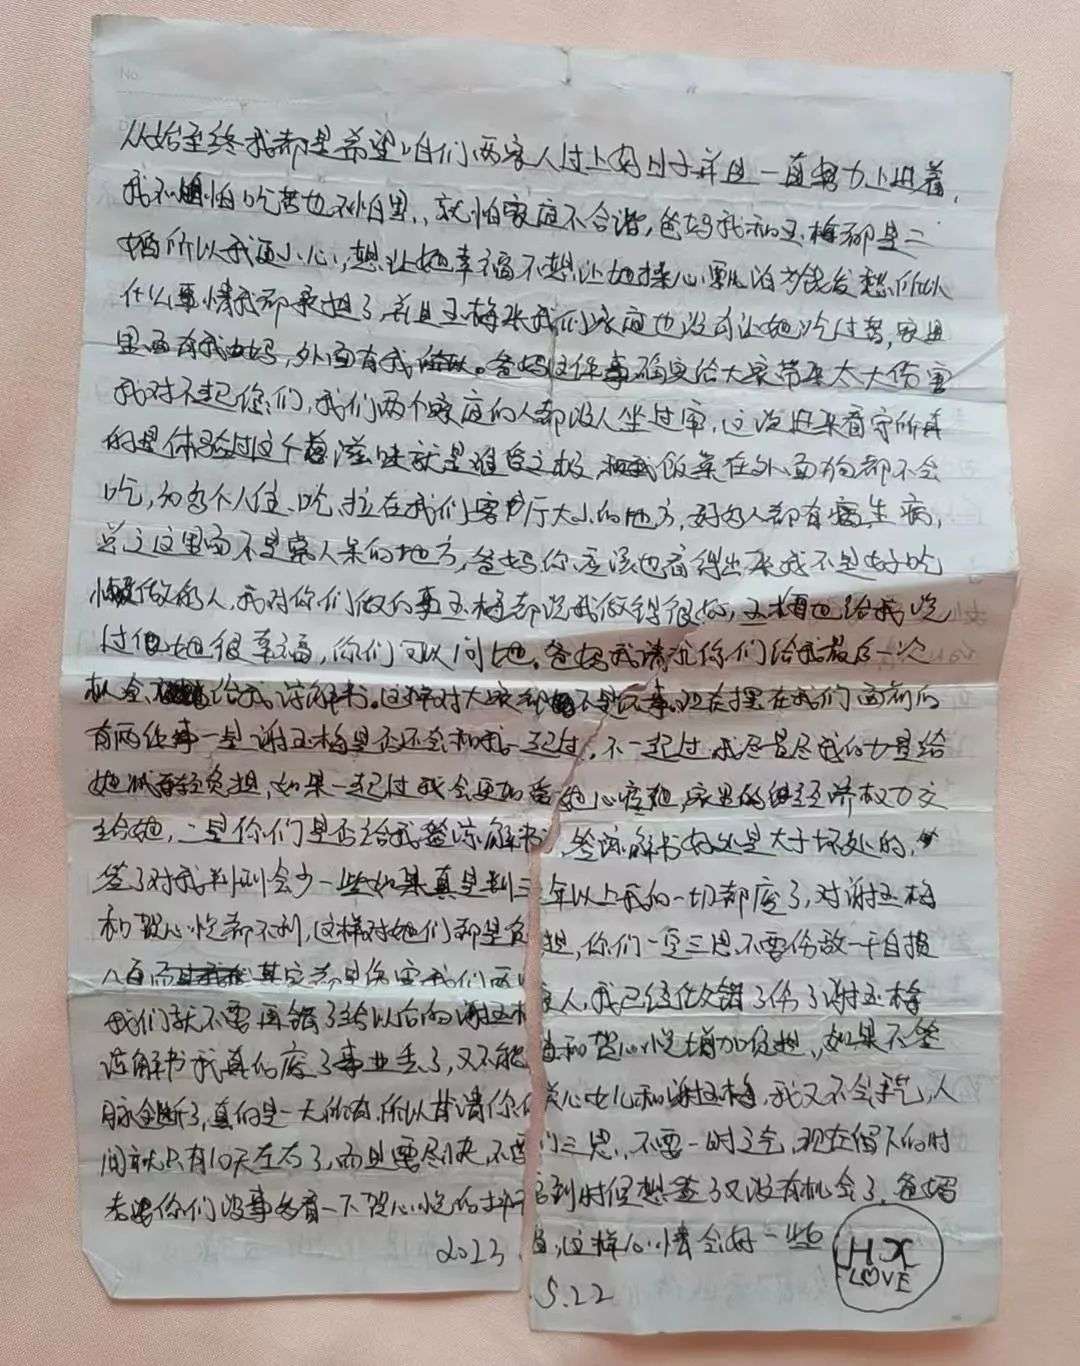 从始至终我都是希望咱们两家人过上好日子并且一直努力上进着,
我不怕吃苦也不怕累,就怕家庭不合谐,爸妈我和玉梅都是二
婚所以我更小心,想让她幸福不想让她操心飘泊为钱发愁所以
什么事情我都承担了,并且玉梅来我们家庭也没有让她吃过苦,家里
里面有我妈,外面有我。爸妈这件事确实给大家带来太大伤害
我对不起你们,我们两个家庭的人都没人坐过牢,这次进来看守所真
的是体验过这个滋味就是难受之极,饭菜在外面狗都不会
吃,个人住、吃、拉在我们客厅大小的地方,好好人都有病生病,
总之这里面不是常人呆的地方,爸妈你应该也看得出来我不是好吃
懒做的人,我对你们做的事玉梅都说我做得很好,玉梅也给我说
过她很幸福,你们可以问她。爸妈我请求你们给我最后一次
机会给我谅解书。这样对大家都不是坏事。现在摆在我们面前的
有两件事一是谢玉梅是否还会和我一起过,不一起过我尽量尽我的力量给
她减轻负担,如果一起过我会更加爱她心疼她,家里的经济权力交
给她,二是你们是否给我签谅解书,签谅解书好处是大于坏处的,
签了对我判刑会少一些如果真是判三年以上我的一切都废了,对谢玉梅
和贺心悦都不利,这样对她们都是负担,你们一定三思不要伤敌一千自损
八百而其实都是伤害我们两家人,我已经做错了伤了谢玉梅
我们就不要再错了给以后的谢玉梅和贺心悦增加负担,如果不签
谅解书我真的废了事业丢了,又不能关心女儿和谢玉梅,我又不会手艺,人
脉全断了,真的是一无所有,所以请你们三思,不要一时之气,现在留下的时
间就只有10天左右了,而且要尽快,不要到时候想签了又没有机会了,爸妈
你们没事多看一下贺心悦的,这样心情会好一些
2023.5.22
HX
LOVE